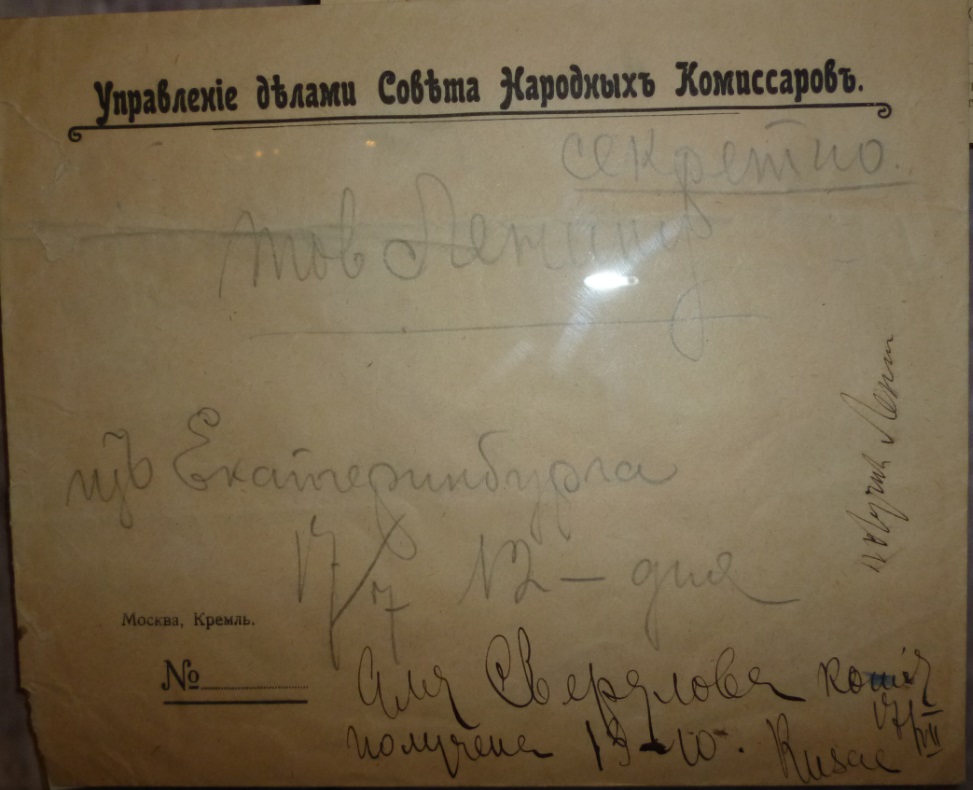 Управленіе дѣлами Совѣта Народныхъ Комиссаровъ.
секретно.
тов Ленину
изъ Екатеринбурга
17/7 12 – дня
Москва, Кремль.
№
Для Свердлова копія
получена
17/VII
Ленин